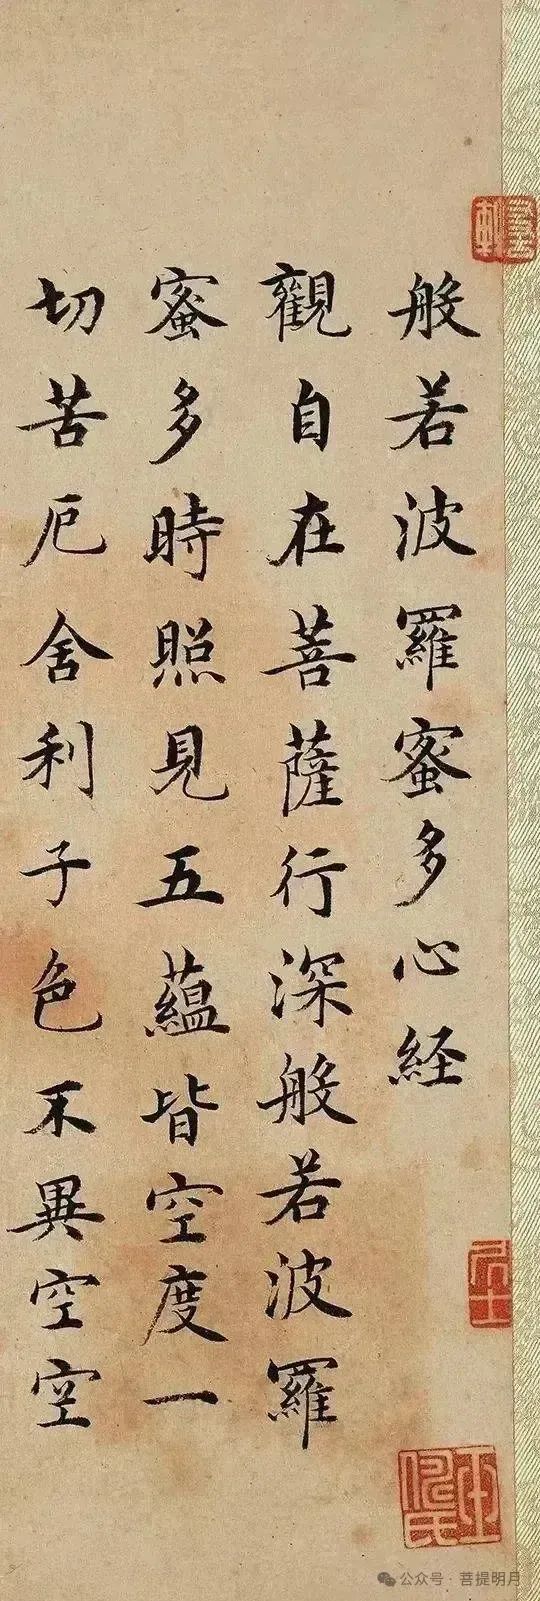 般若波羅蜜多心経
觀自在菩薩行深般若波羅
蜜多時照見五蘊皆空度一
切苦厄舍利子色不異空空
公众号·菩提明月